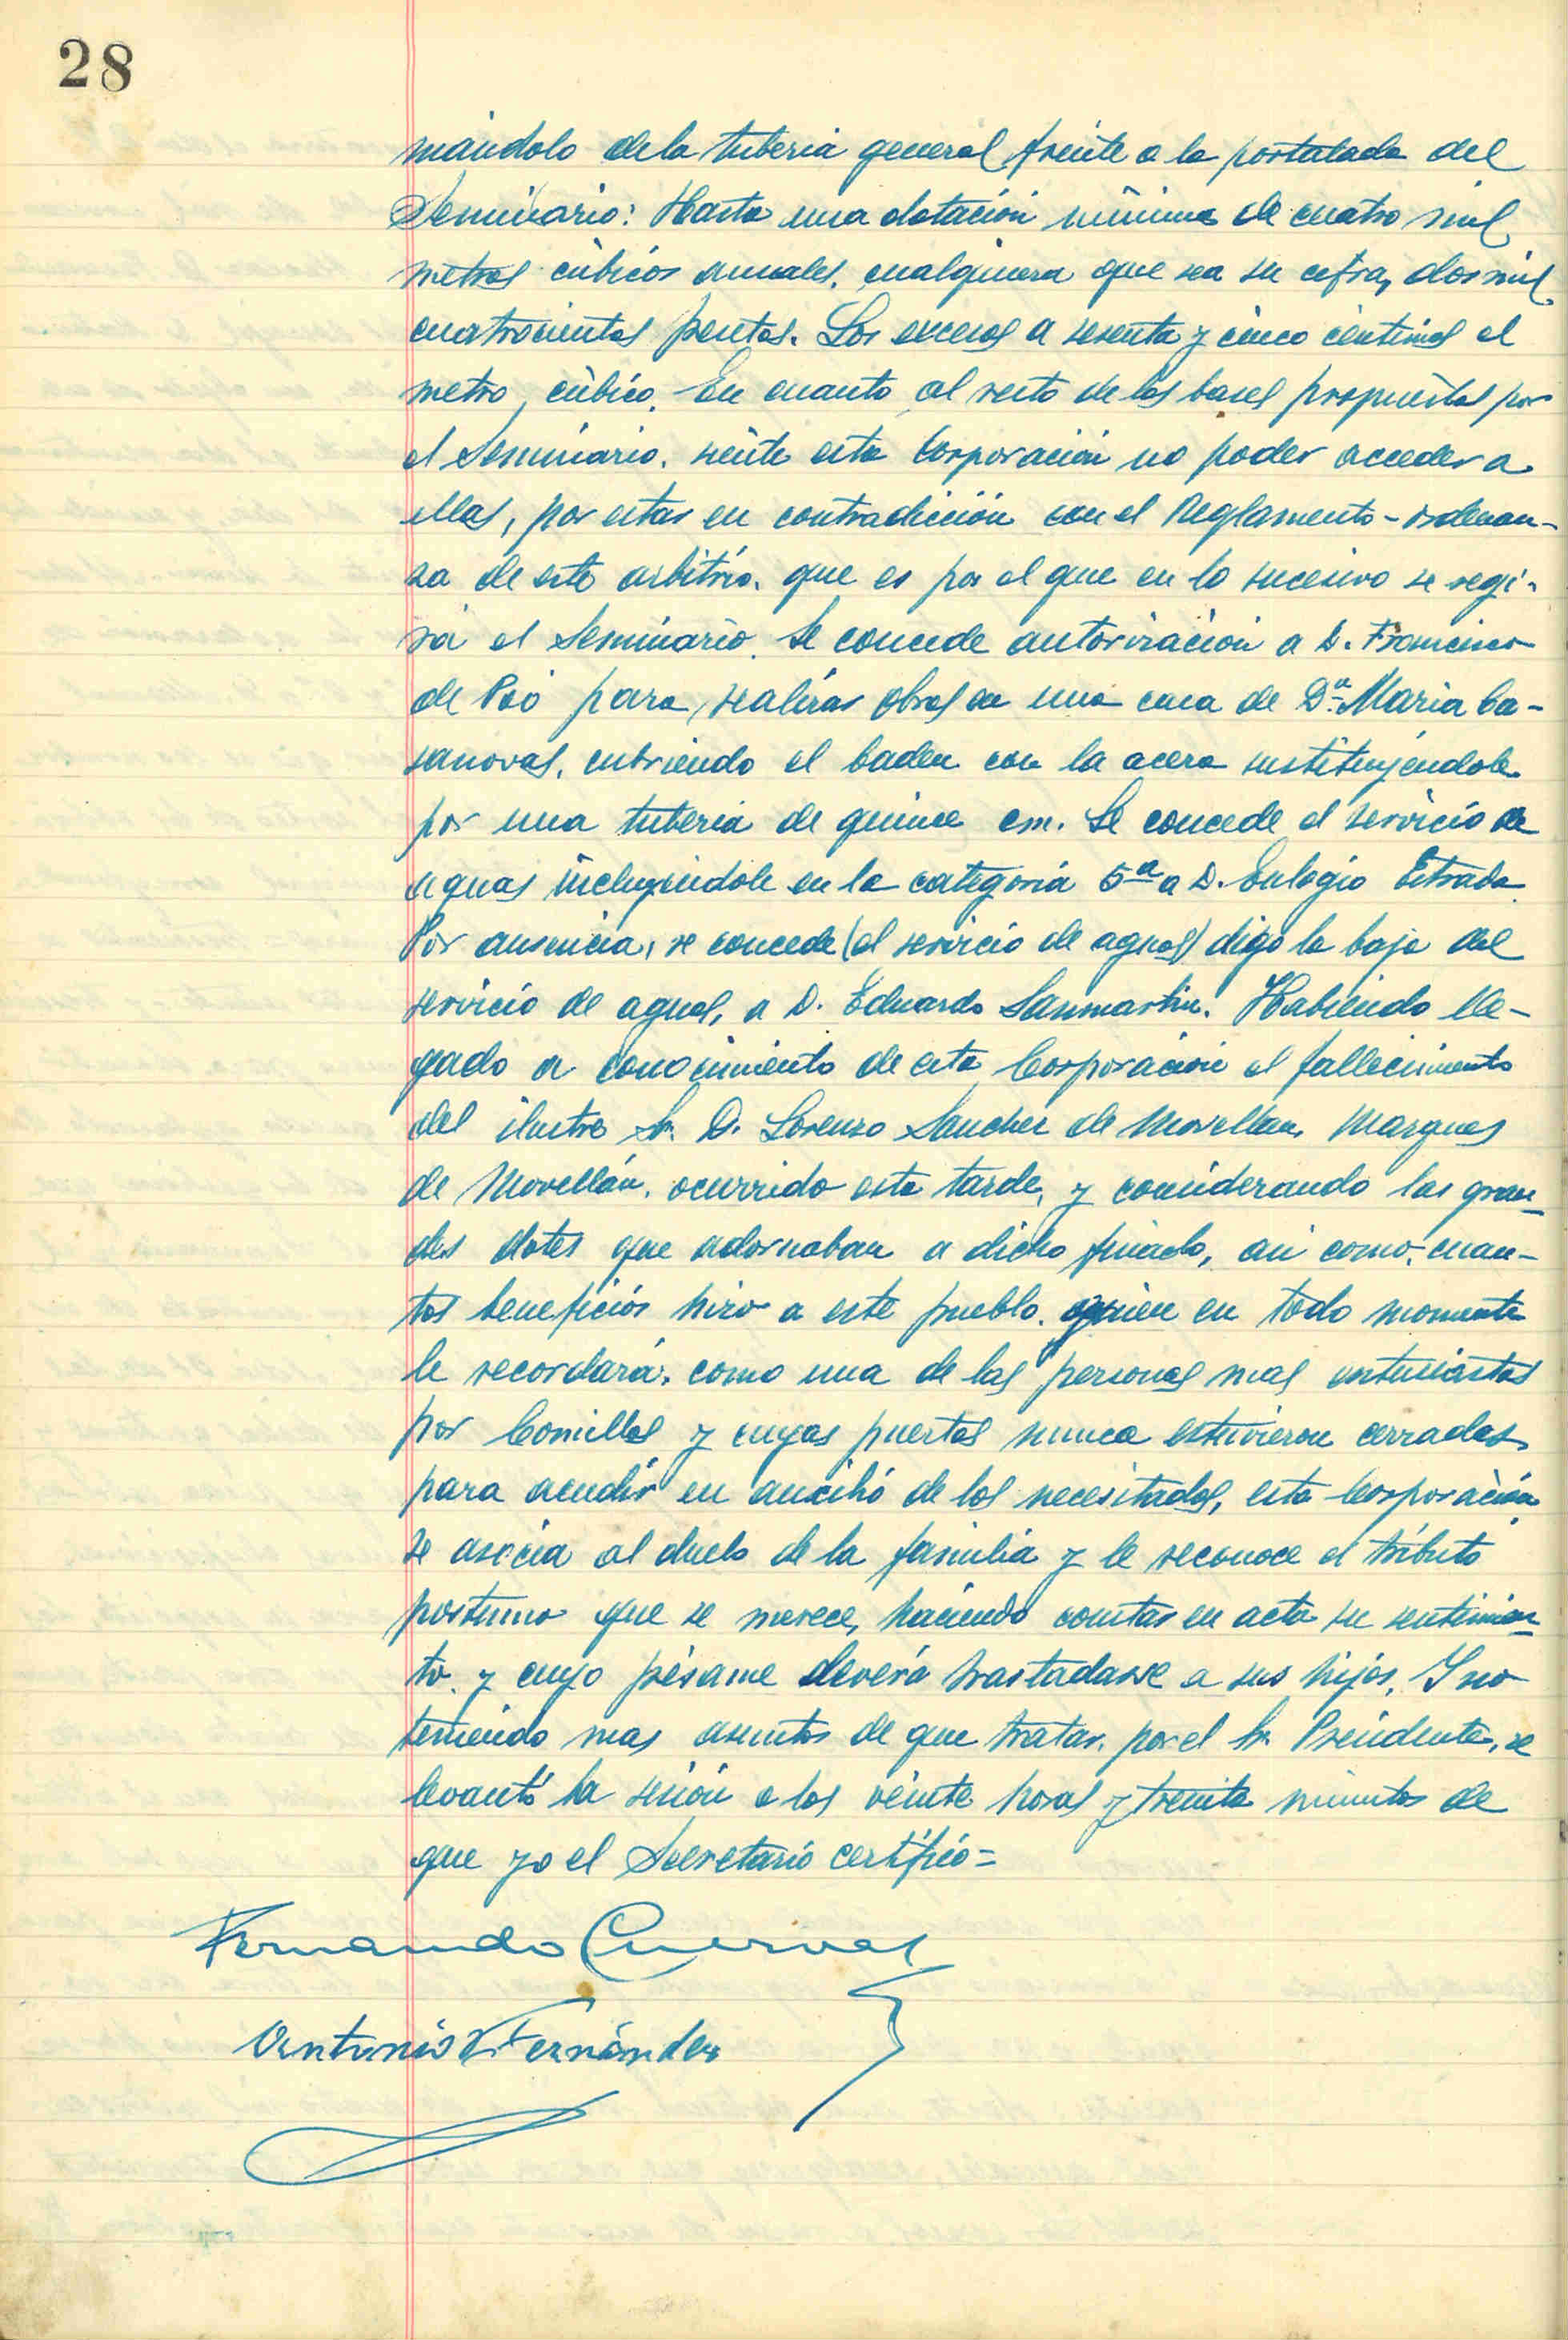 28
mándolo de la tuberia general frente a la portalada del
Seminario: Hasta una dotación minima de cuatro mil
metros cúbicos anuales, cualquiera que sea su cifra, dos mil
cuatrocientas pesetas. Los excesos a sesenta y cinco centimos el
metro cúbico. En cuanto al resto de las bases propuestas por
el Seminario, siente esta Corporación no poder acceder a
ellas, por estar en contradicción con el Reglamento-ordenan-
za de este arbitrio, que es por el que en lo sucesivo se regi-
rá el Seminario. Se concede autorización a D. Francisco
de Poó para realizar obras en una casa de Dª Maria Ca-
sanovas, cubriendo el baden con la acera sustituyendole
por una tuberia de quince cm. Se concede el servicio de
aguas incluyendole en la categoria 5ª a D. Eulogio Estrada.
Por ausencia, se concede (el servicio de aguas) digo la baja del
servicio de aguas, a D. Eduardo Sanmartin. Habiendo lle-
gado a conocimiento de esta Corporación el fallecimiento
del ilustre Sr. D. Lorenzo Sanchez de Movellan, Marques
de Movellán, ocurrido esta tarde, y considerando las gran-
des dotes que adornaban a dicho finado, asi como, cuan-
tos beneficios hizo a este pueblo, quien en todo momento
le recordará, como una de las personas mas entusiastas
por Comillas y cuyas puertas nunca estuvieron cerradas
para acudir en auxilio de los necesitados, esta Corporación
se asocia al duelo de la familia y le reconoce el tributo
postumo que se merece, haciendo constar en acta su sentimien-
to, y cuyo pésame deverá trastadarse a sus hijos. Y no
teniendo mas asuntos de que tratar, por el Sr. Presidente, se
levantó la sesión a las veinte horas y treinta minutos de
que yo el Secretario certifico=
Fernando Cuevas
Antonio Fernández